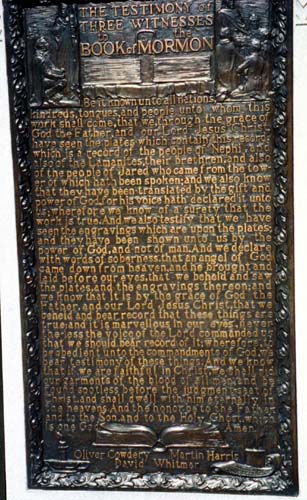 THE TESTIMONY OF
THREE WITNESSES
to the
BOOK of MORMON
Be it known unto all nations,
kindreds, tongues, and people unto whom this
work shall come, that we, through the grace of
God the Father, and our Lord Jesus Christ,
have seen the plates which contain this record,
which is a record of the people of Nephi, and
also of the Lamanites, their brethren, and also
of the people of Jared who came from the tow-
er of which hath been spoken; and we also know
that they have been translated by the gift and
power of God, for his voice hath declared it unto
us; wherefore we know of a surety that the
work is true. And we also testify that we have
seen the engravings which are upon the plates;
and they have been shown unto us by the
power of God, and not of man. And we declare
with words of soberness, that an angel of God
came down from heaven, and he brought and
laid before our eyes, that we beheld and saw
the plates, and the engravings thereon; and
we know that it is by the grace of God the
Father, and our Lord Jesus Christ, that we
beheld and bear record that these things are
true; and it is marvelous in our eyes, never-
theless the voice of the Lord commanded us
that we should bear record of it; wherefore,
to be obedient unto the commandments of God, we
bear testimony of these things. And we know
that if we are faithful in Christ, we shall rid
our garments of the blood of all men, and be
found spotless before the judgment-seat of
Christ, and shall dwell with him eternally in
the heavens. And the honor be to the Father,
and to the Son, and to the Holy Ghost, which
is one God. Amen.
Oliver Cowdery Martin Harris
David Whitmer